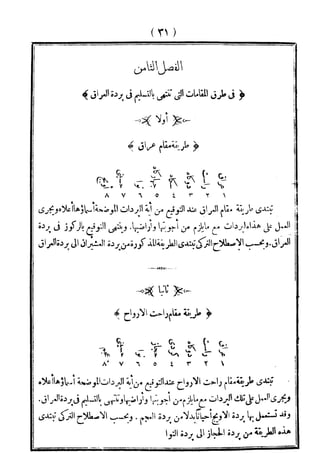 ( ٣١ )
الفصل الثامن
﴿ فى طرق المقامات التى تنتهى بالتسليم فى بردة العراق ﴾
اولا
﴿ طريقة مقام عراق ﴾
عراق راست دوكاه
١ ٢ ٣ ٤ ٥ ٦ ٧ ٨
تبتدى طريقة مقام العراق عند التوقيع من أية البردات الموضحة أسماؤها أعلاه ويجرى
العمل على هذه البردات مع مايلزم من أجوبتها وأراضيها. وينتهى التوقيع بالركوز فى بردة
العراق. وبحسب الاصطلاح التركى تبتدى الطريقة المذكورة من بردة العشيران الى بردة العراق
ثانيا
﴿ طريقة مقام راحت الارواح ﴾
عراق راست حجاز
١ ٢ ٣ ٤ ٥ ٦ ٧ ٨
تبتدى طريقة مقام راحت الارواح عند التوقيع من أية البردات الموضحة أسماؤها أعلاه
ويجرى العمل على تلك البردات مع مايلزم من أجوبتها وأراضيها وتنتهى بالتسليم فى بردة العراق.
وقد تستعمل بها بردة الاويج أحيانا بدلا من بردة العجم. وبحسب الاصطلاح التركى تبتدى
هذه الطريقة من بردة الحجاز الى بردة النوا